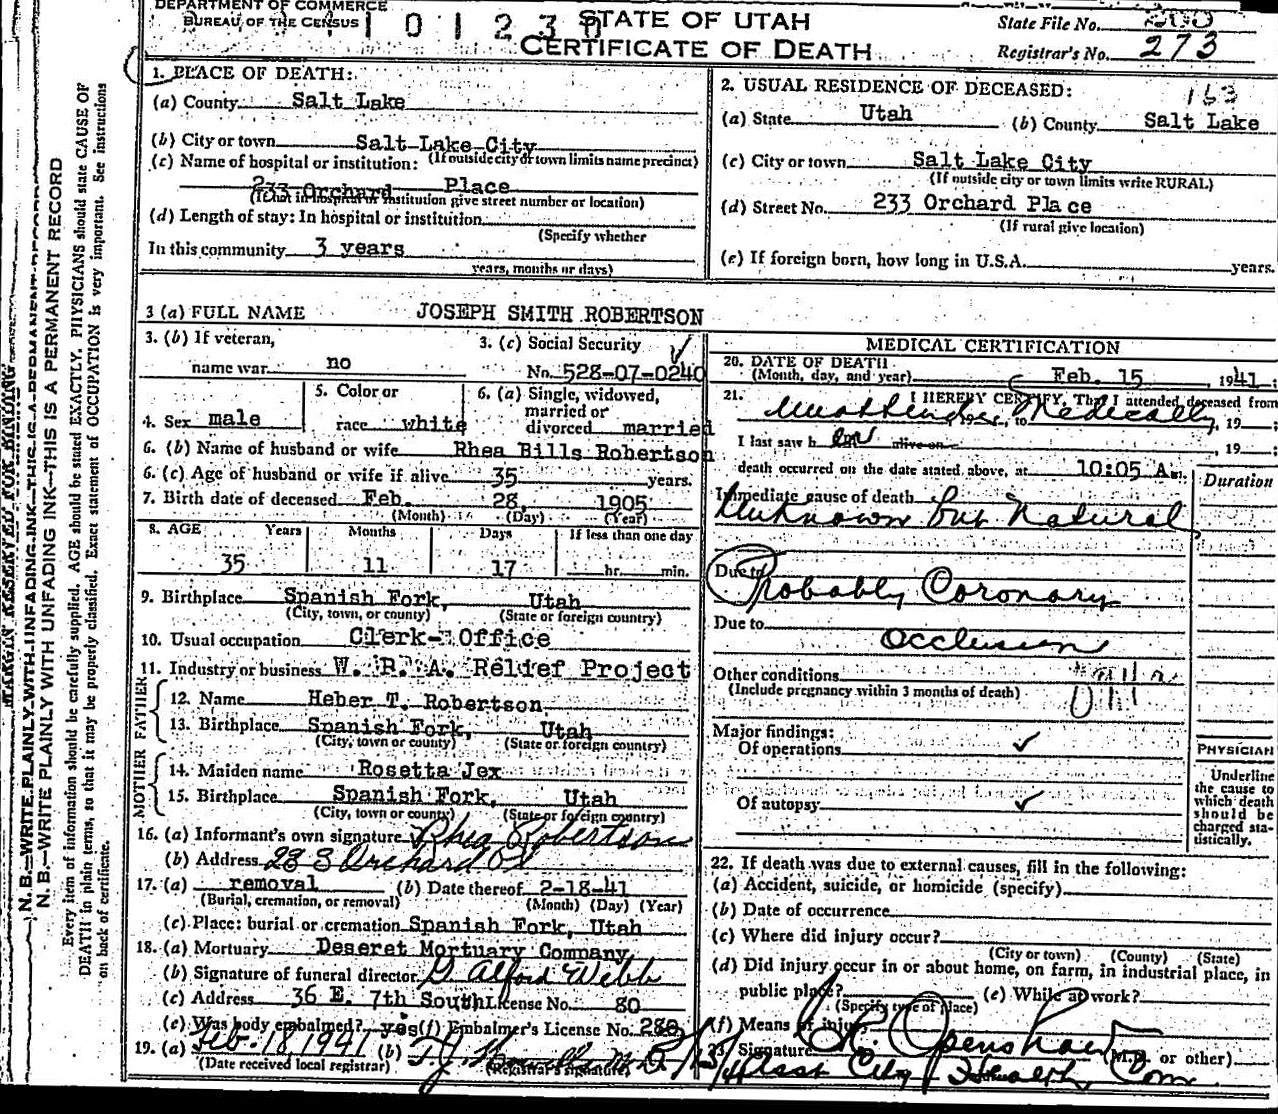 DEPARTMENT OF COMMERCE
BUREAU OF THE CENSUS
1 0 1 2 3 0
STATE OF UTAH
CERTIFICATE OF DEATH
State File No.
Registrar's No. 273
1. PLACE OF DEATH:
(a) County Salt Lake
(b) City or town Salt Lake City
(If outside city or town limits name precinct)
(c) Name of hospital or institution:
233 Orchard Place
(If not in hospital or institution give street number or location)
(d) Length of stay: In hospital or institution
(Specify whether
In this community 3 years
years, months or days)
2. USUAL RESIDENCE OF DECEASED:
163
(a) State Utah (b) County Salt Lake
(c) City or town Salt Lake City
(If outside city or town limits write RURAL)
(d) Street No. 233 Orchard Place
(If rural give location)
(e) If foreign born, how long in U.S.A. years.
3 (a) FULL NAME JOSEPH SMITH ROBERTSON
3. (b) If veteran,
name war no
3. (c) Social Security
No. 528-07-0240
4. Sex male
5. Color or
race white
6. (a) Single, widowed,
married or
divorced married
6. (b) Name of husband or wife Rhea Bills Robertson
6. (c) Age of husband or wife if alive 35 years.
7. Birth date of deceased Feb. 28, 1905
(Month) (Day) (Year)
8. AGE Years Months Days If less than one day
35 11 17 hr. min.
9. Birthplace Spanish Fork, Utah
(City, town, or county) (State or foreign country)
10. Usual occupation Clerk- Office
11. Industry or business W. P. A. Relief Project
FATHER
12. Name Heber T. Robertson
13. Birthplace Spanish Fork, Utah
(City, town or county) (State or foreign country)
MOTHER
14. Maiden name Rosetta Jex
15. Birthplace Spanish Fork, Utah
(City, town or county) (State or foreign country)
16. (a) Informant's own signature Rhea Robertson
(b) Address 233 Orchard Pl
17. (a) removal (b) Date thereof 2-18-41
(Burial, cremation, or removal) (Month) (Day) (Year)
(c) Place: burial or cremation Spanish Fork, Utah
18. (a) Mortuary Deseret Mortuary Company
(b) Signature of funeral director D Alford Webb
(c) Address 36 E. 7th South License No. 80
(e) Was body embalmed? yes (f) Embalmer's License No.
19. (a) Feb. 18, 1941 (b)
(Date received local registrar) (Registrar's signature)
MEDICAL CERTIFICATION
20. DATE OF DEATH
(Month, day, and year) Feb. 15, 1941;
21. I HEREBY CERTIFY, That I attended deceased from
Unattended, to Medically, 19 ;
I last saw him alive on , 19 ;
death occurred on the date stated above, at 10:05 A m.
Duration
Immediate cause of death
Unknown but Natural
Due to Probably Coronary
Due to Occlusion
Other conditions
(Include pregnancy within 3 months of death)
Major findings:
Of operations ✓
Of autopsy ✓
PHYSICIAN
Underline
the cause to
which death
should be
charged sta-
tistically.
22. If death was due to external causes, fill in the following:
(a) Accident, suicide, or homicide (specify)
(b) Date of occurrence
(c) Where did injury occur?
(City or town) (County) (State)
(d) Did injury occur in or about home, on farm, in industrial place, in
public place? (e) While at work?
(Specify type of place)
(f) Means of injury
23. Signature Openshaw (M.D. or other)
Asst City Health Com
MARGIN RESERVED FOR BINDING
N. B.—WRITE PLAINLY WITH UNFADING INK—THIS IS A PERMANENT RECORD
N. B.—WRITE PLAINLY WITH UNFADING INK—THIS IS A PERMANENT RECORD
Every item of information should be carefully supplied. AGE should be stated EXACTLY. PHYSICIANS should state CAUSE OF
DEATH in plain terms, so that it may be properly classified. Exact statement of OCCUPATION is very important. See instructions
on back of certificate.